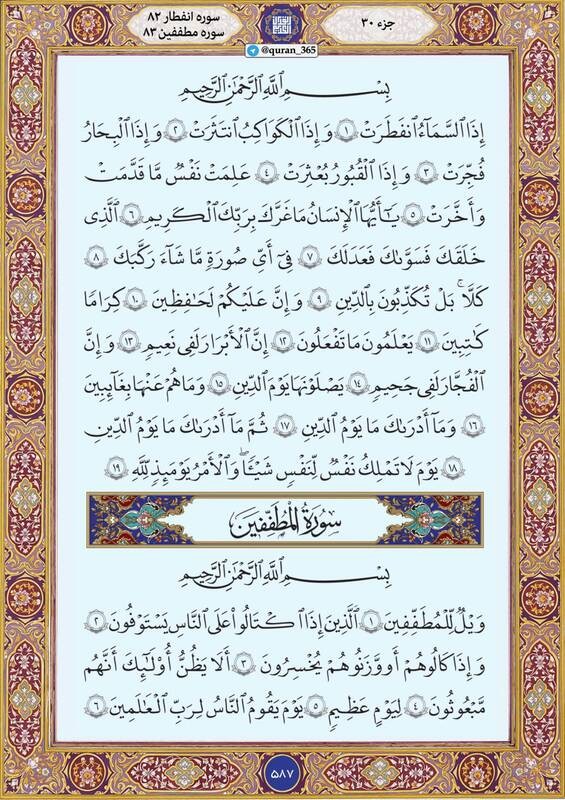 جزء ۳۰
سوره انفطار ۸۲
سوره مطففین ۸۳
@quran_365
بِسْمِ ٱللَّهِ ٱلرَّحْمَٰنِ ٱلرَّحِيمِ
إِذَا ٱلسَّمَآءُ ٱنفَطَرَتْ ۝١ وَإِذَا ٱلْكَوَاكِبُ ٱنتَثَرَتْ ۝٢ وَإِذَا ٱلْبِحَارُ
فُجِّرَتْ ۝٣ وَإِذَا ٱلْقُبُورُ بُعْثِرَتْ ۝٤ عَلِمَتْ نَفْسٌ مَّا قَدَّمَتْ
وَأَخَّرَتْ ۝٥ يَٰٓأَيُّهَا ٱلْإِنسَٰنُ مَا غَرَّكَ بِرَبِّكَ ٱلْكَرِيمِ ۝٦ ٱلَّذِى
خَلَقَكَ فَسَوَّىٰكَ فَعَدَلَكَ ۝٧ فِىٓ أَىِّ صُورَةٍ مَّا شَآءَ رَكَّبَكَ ۝٨
كَلَّا ۖ بَلْ تُكَذِّبُونَ بِٱلدِّينِ ۝٩ وَإِنَّ عَلَيْكُمْ لَحَٰفِظِينَ ۝١٠ كِرَامًا
كَٰتِبِينَ ۝١١ يَعْلَمُونَ مَا تَفْعَلُونَ ۝١٢ إِنَّ ٱلْأَبْرَارَ لَفِى نَعِيمٍ ۝١٣ وَإِنَّ
ٱلْفُجَّارَ لَفِى جَحِيمٍ ۝١٤ يَصْلَوْنَهَا يَوْمَ ٱلدِّينِ ۝١٥ وَمَا هُمْ عَنْهَا بِغَآئِبِينَ
۝١٦ وَمَآ أَدْرَىٰكَ مَا يَوْمُ ٱلدِّينِ ۝١٧ ثُمَّ مَآ أَدْرَىٰكَ مَا يَوْمُ ٱلدِّينِ
۝١٨ يَوْمَ لَا تَمْلِكُ نَفْسٌ لِّنَفْسٍ شَيْـًٔا ۖ وَٱلْأَمْرُ يَوْمَئِذٍ لِّلَّهِ ۝١٩
سُورَةُ المُطَفِّفِينَ
بِسْمِ ٱللَّهِ ٱلرَّحْمَٰنِ ٱلرَّحِيمِ
وَيْلٌ لِّلْمُطَفِّفِينَ ۝١ ٱلَّذِينَ إِذَا ٱكْتَالُوا۟ عَلَى ٱلنَّاسِ يَسْتَوْفُونَ ۝٢
وَإِذَا كَالُوهُمْ أَو وَّزَنُوهُمْ يُخْسِرُونَ ۝٣ أَلَا يَظُنُّ أُو۟لَٰٓئِكَ أَنَّهُم
مَّبْعُوثُونَ ۝٤ لِيَوْمٍ عَظِيمٍ ۝٥ يَوْمَ يَقُومُ ٱلنَّاسُ لِرَبِّ ٱلْعَٰلَمِينَ ۝٦
۵۸۷